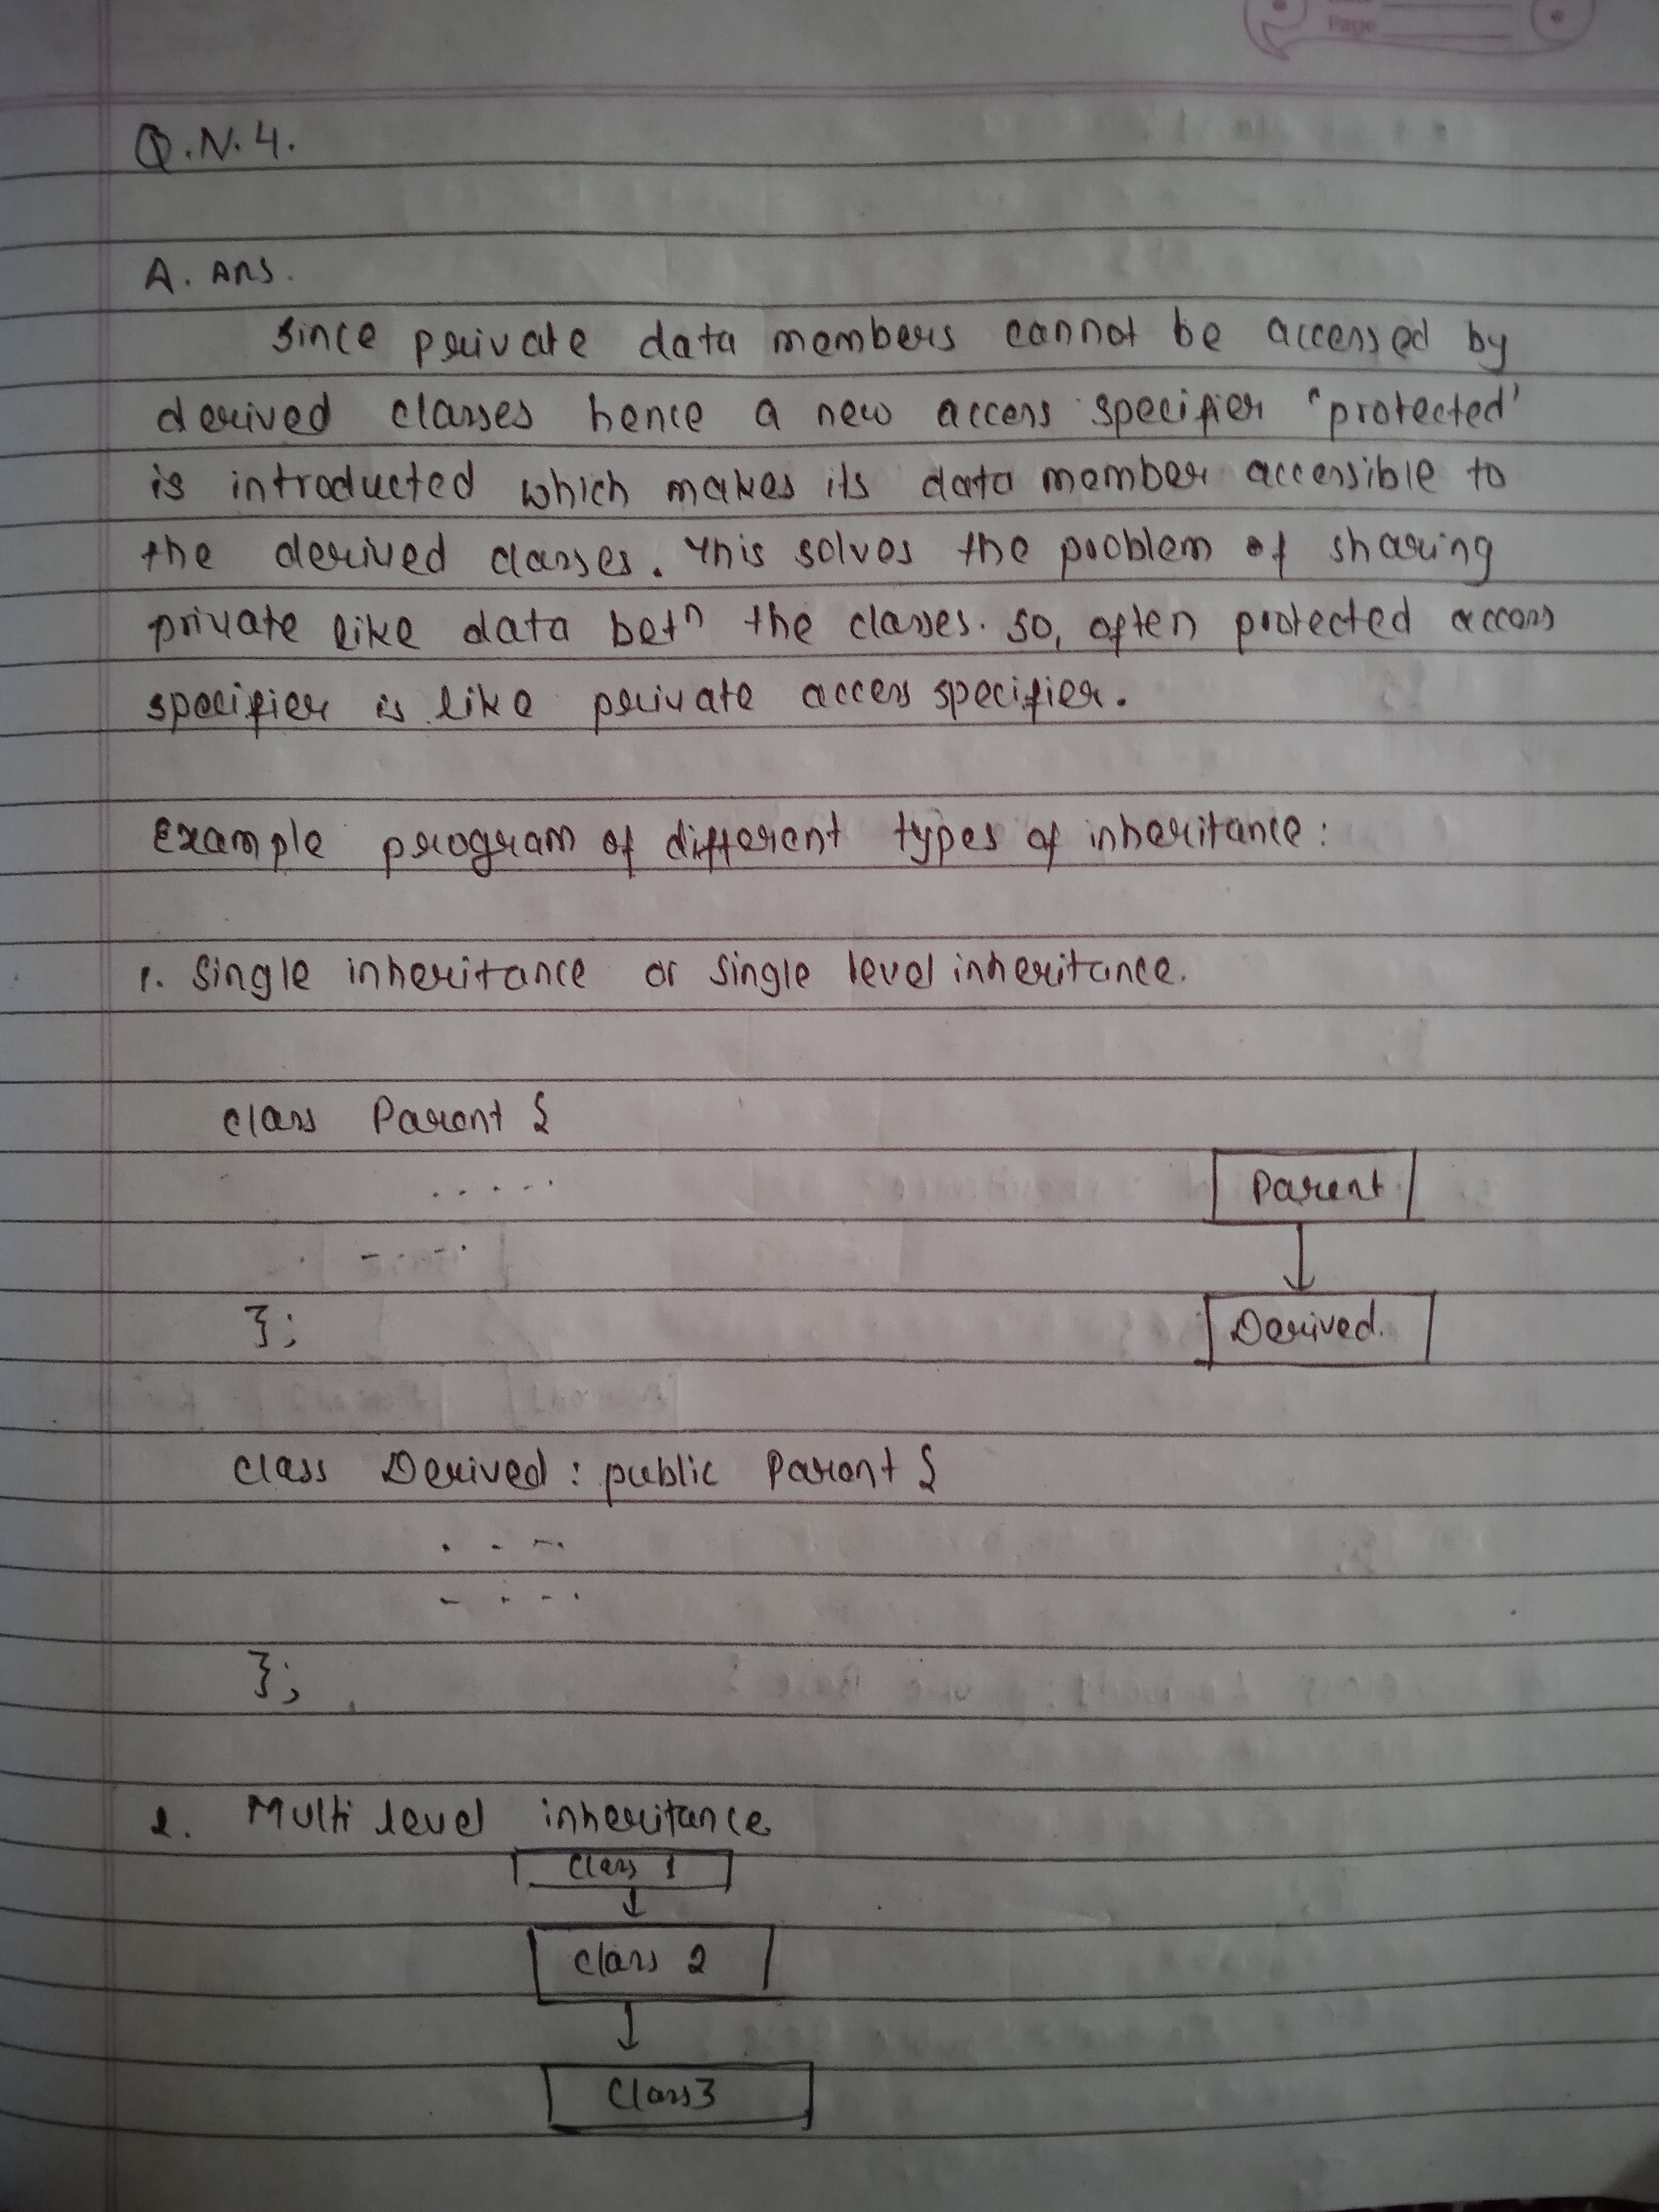 Page
Q.N.4.
A. Ans.
Since private data members cannot be accessed by
derived classes hence a new access specifier 'protected'
is introducted which makes its data member accessible to
the derived classes. This solves the problem of sharing
private like data betn the classes. So, often protected access
specifier is like private access specifier.
Example program of different types of inheritance:
1. Single inheritance or single level inheritance.
class Parent {
.....
-..-.
};
Parent
Derived.
class Derived : public Parent {
. - -.
- . - .
};
2. Multi level inheritance
Class 1
Class 2
Class3